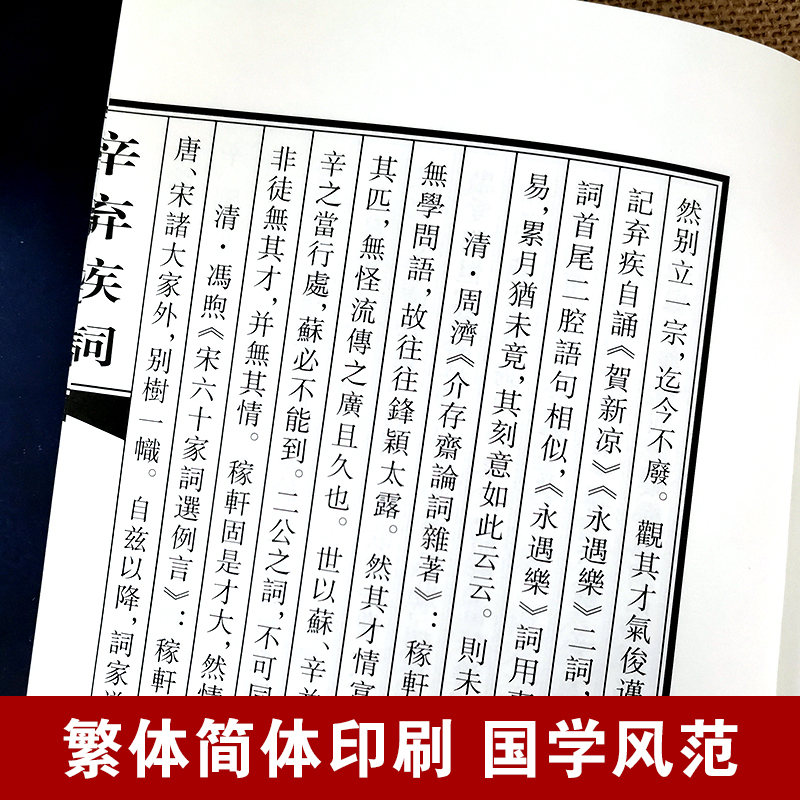 然别立一宗，迄今不廢。觀其才氣俊邁
記弃疾自誦《賀新凉》《永遇樂》二詞，
詞首尾二腔語句相似，《永遇樂》詞用
易，累月猶未竟，其刻意如此云云。則未
清·周濟《介存齋論詞雜著》：稼軒
無學問語，故往往鋒穎太露。然其才情富
其匹，無怪流傳之廣且久也。世以蘇、辛並
辛之當行處，蘇必不能到。二公之詞，不可同
非徒無其才，并無其情。稼軒固是才大，然情
清·馮煦《宋六十家詞選例言》：稼軒
唐、宋諸大家外，别樹一幟。自兹以降，詞家
辛弃疾詞
繁体简体印刷 国学风范